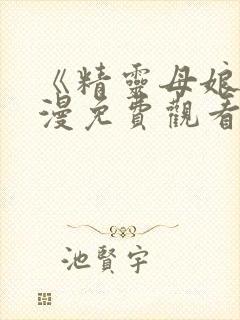 《精靈母娘
漫免費觀看
池賢宇